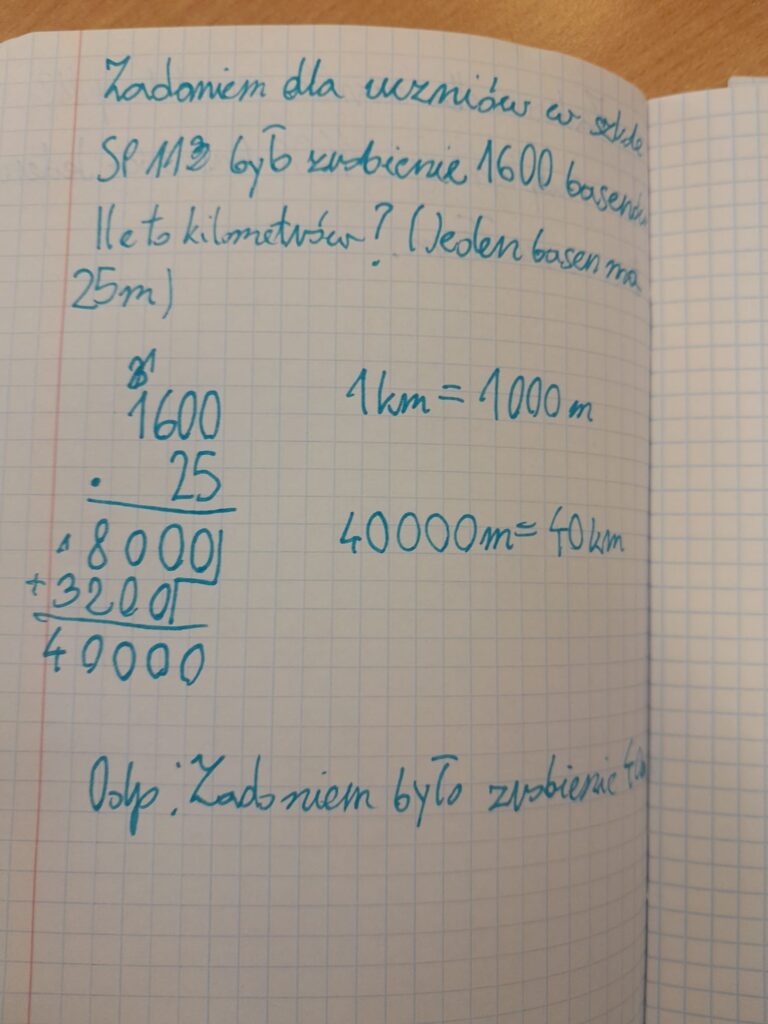 Zadaniem dla uczniów w szkole
SP 113 było zrobienie 1600 basenów
Ile to kilometrów? (Jeden basen ma
25m)
1
1600
· 25
1 8000
+ 3200
40000
1km = 1000m
40000m = 40km
Odp: Zadaniem było zrobienie